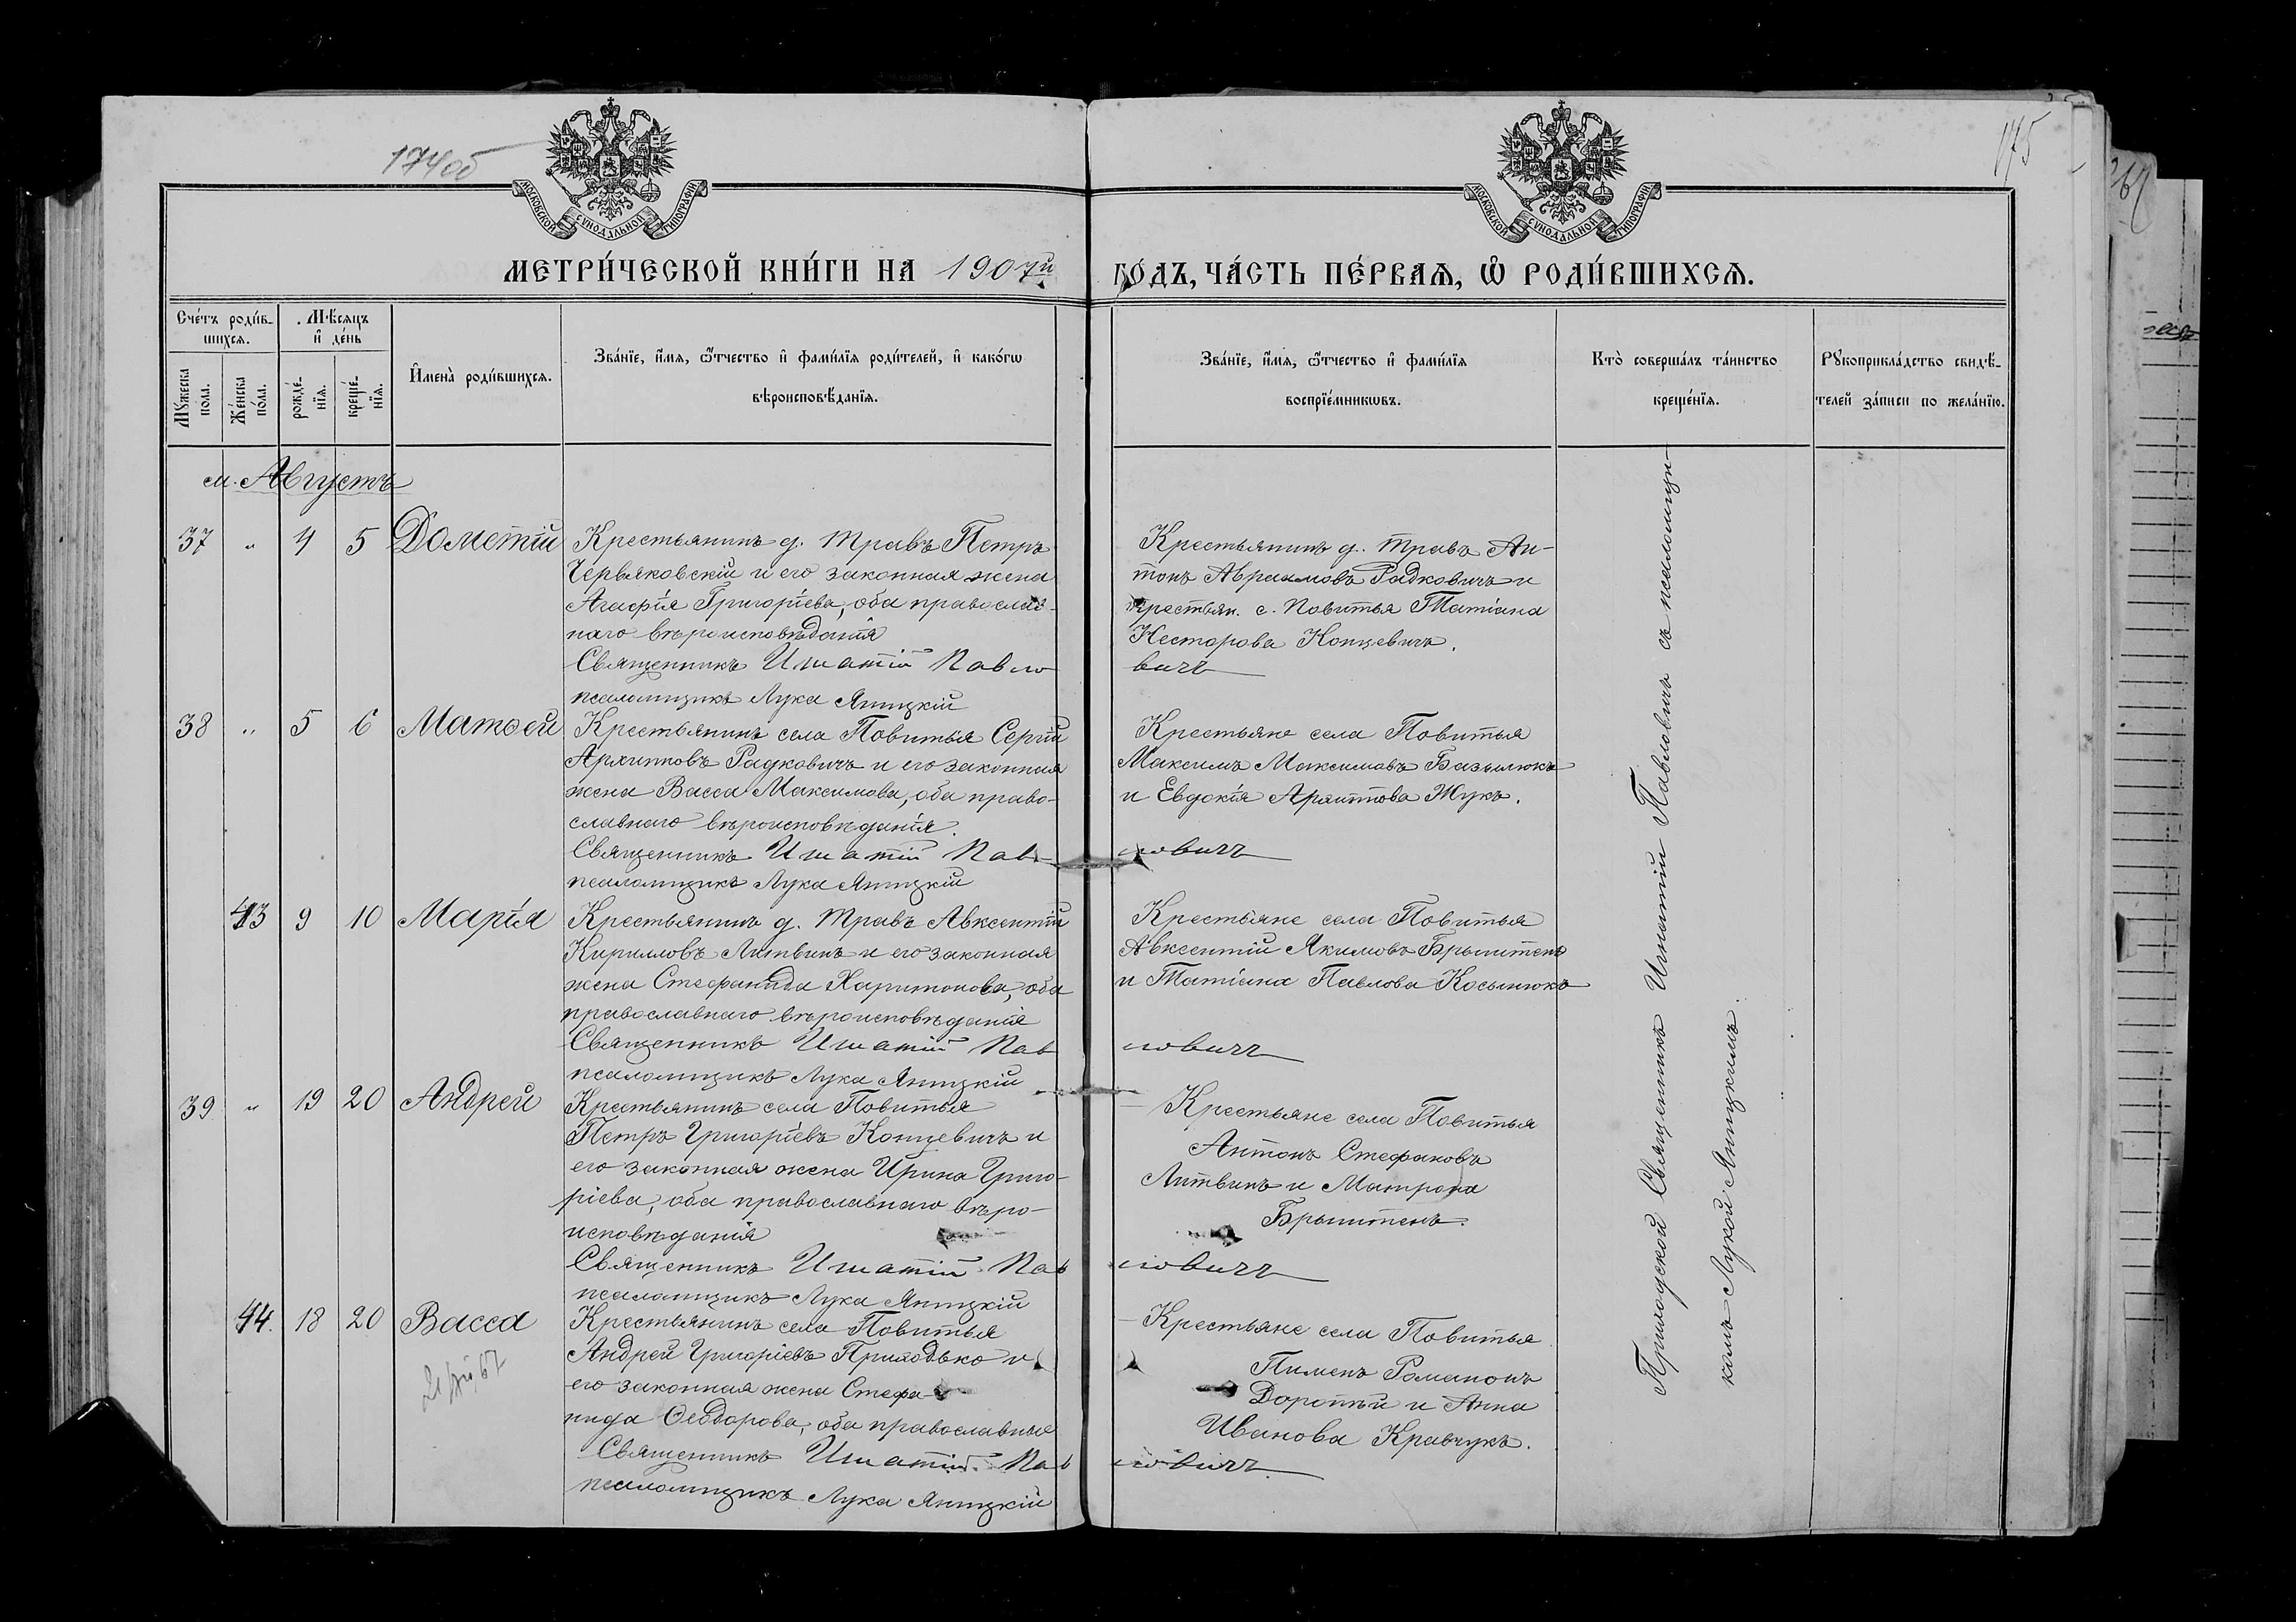 174об
175
МОСКОВСКОЙ СѴНОДАЛЬНОЙ ТИПОГРАФІИ
МОСКОВСКОЙ СѴНОДАЛЬНОЙ ТИПОГРАФІИ
МЕТРИ́ЧЕСКОЙ КНИ́ГИ НА 1907й ГО́ДЪ, ЧА́СТЬ ПЕ́РВАѦ, Ѡ РОДИ́ВШИХСѦ.
Сче́тъ роди́в-
шихсѧ.
Мѣ́сѧцъ
и҆ де́нь
Мꙋ́жеска
пола.
Же́нска
по́ла.
рожде́-
нїѧ.
креще́-
нїѧ.
И҆мена̀ роди́вшихсѧ.
Зва́нїе, и҆́мѧ, ѻ҆́тчество и҆ фамі́лїѧ роди́телей, и҆ како́гѡ
вѣроисповѣ́данїѧ.
Зва́нїе, и҆́мѧ, ѻ҆́тчество и҆ фамі́лїѧ
воспрїе́мникѡвъ.
Кто̀ соверша́лъ та́инство
креще́нїѧ.
Рꙋкоприкла́дство свидѣ́-
телей за́писи по жела́нїю.
м. Августъ
37 " 4 5 Дометій
Крестьянинъ д. Травъ Петръ
Червяковскій и его законная жена
Агафія Григоріева, оба православ-
наго вѣроисповѣданія
Священникъ Игнатій Павло
вичъ
псаломщикъ Лука Яницкій
Крестьянинъ д. Травъ Ан-
тонъ Авраамовъ Радковичъ и
крестьян. с. Повитья Татіана
Несторова Концевичъ.
38 " 5 6 Матөей
Крестьянинъ села Повитья Сергій
Архипповъ Радковичъ и его законная
жена Васса Максимова, оба право-
славнаго вѣроисповѣданія.
Священникъ Игнатій Пав
ловичъ
псаломщикъ Лука Яницкій
Крестьяне села Повитья
Максимъ Максимовъ Базылюкъ
и Евдокія Архиппова Жукъ.
43 9 10 Марія
Крестьянинъ д. Травъ Авксентій
Кирилловъ Литвинъ и его законная
жена Стефанида Харитонова, оба
православнаго вѣроисповѣданія
Священникъ Игнатій Пав
ловичъ
псаломщикъ Лука Яницкій
Крестьяне села Повитья
Авксентій Якимовъ Брыштенъ
и Татіана Павлова Косынюкъ
39 " 19 20 Андрей
Крестьянинъ села Повитья
Петръ Григоріевъ Концевичъ и
его законная жена Ирина Григо-
ріева, оба православнаго вѣро-
исповѣданія
Священникъ Игнатій Пав
ловичъ
псаломщикъ Лука Яницкій
Крестьяне села Повитья
Антонъ Стефановъ
Литвинъ и Матрона
Брыштенъ.
44. 18 20 Васса
Крестьянинъ села Повитья
Андрей Григоріевъ Приходько и
его законная жена Стефа-
нида Ѳеодорова, оба православные
Священникъ Игнатій Пав
ловичъ
псаломщикъ Лука Яницкій
Крестьяне села Повитья
Пименъ Романовъ
Дорошъ и Анна
Иванова Кравчукъ.
Приходской Священникъ Игнатій Павловичъ съ псаломщи-
комъ Лукой Яницкимъ.